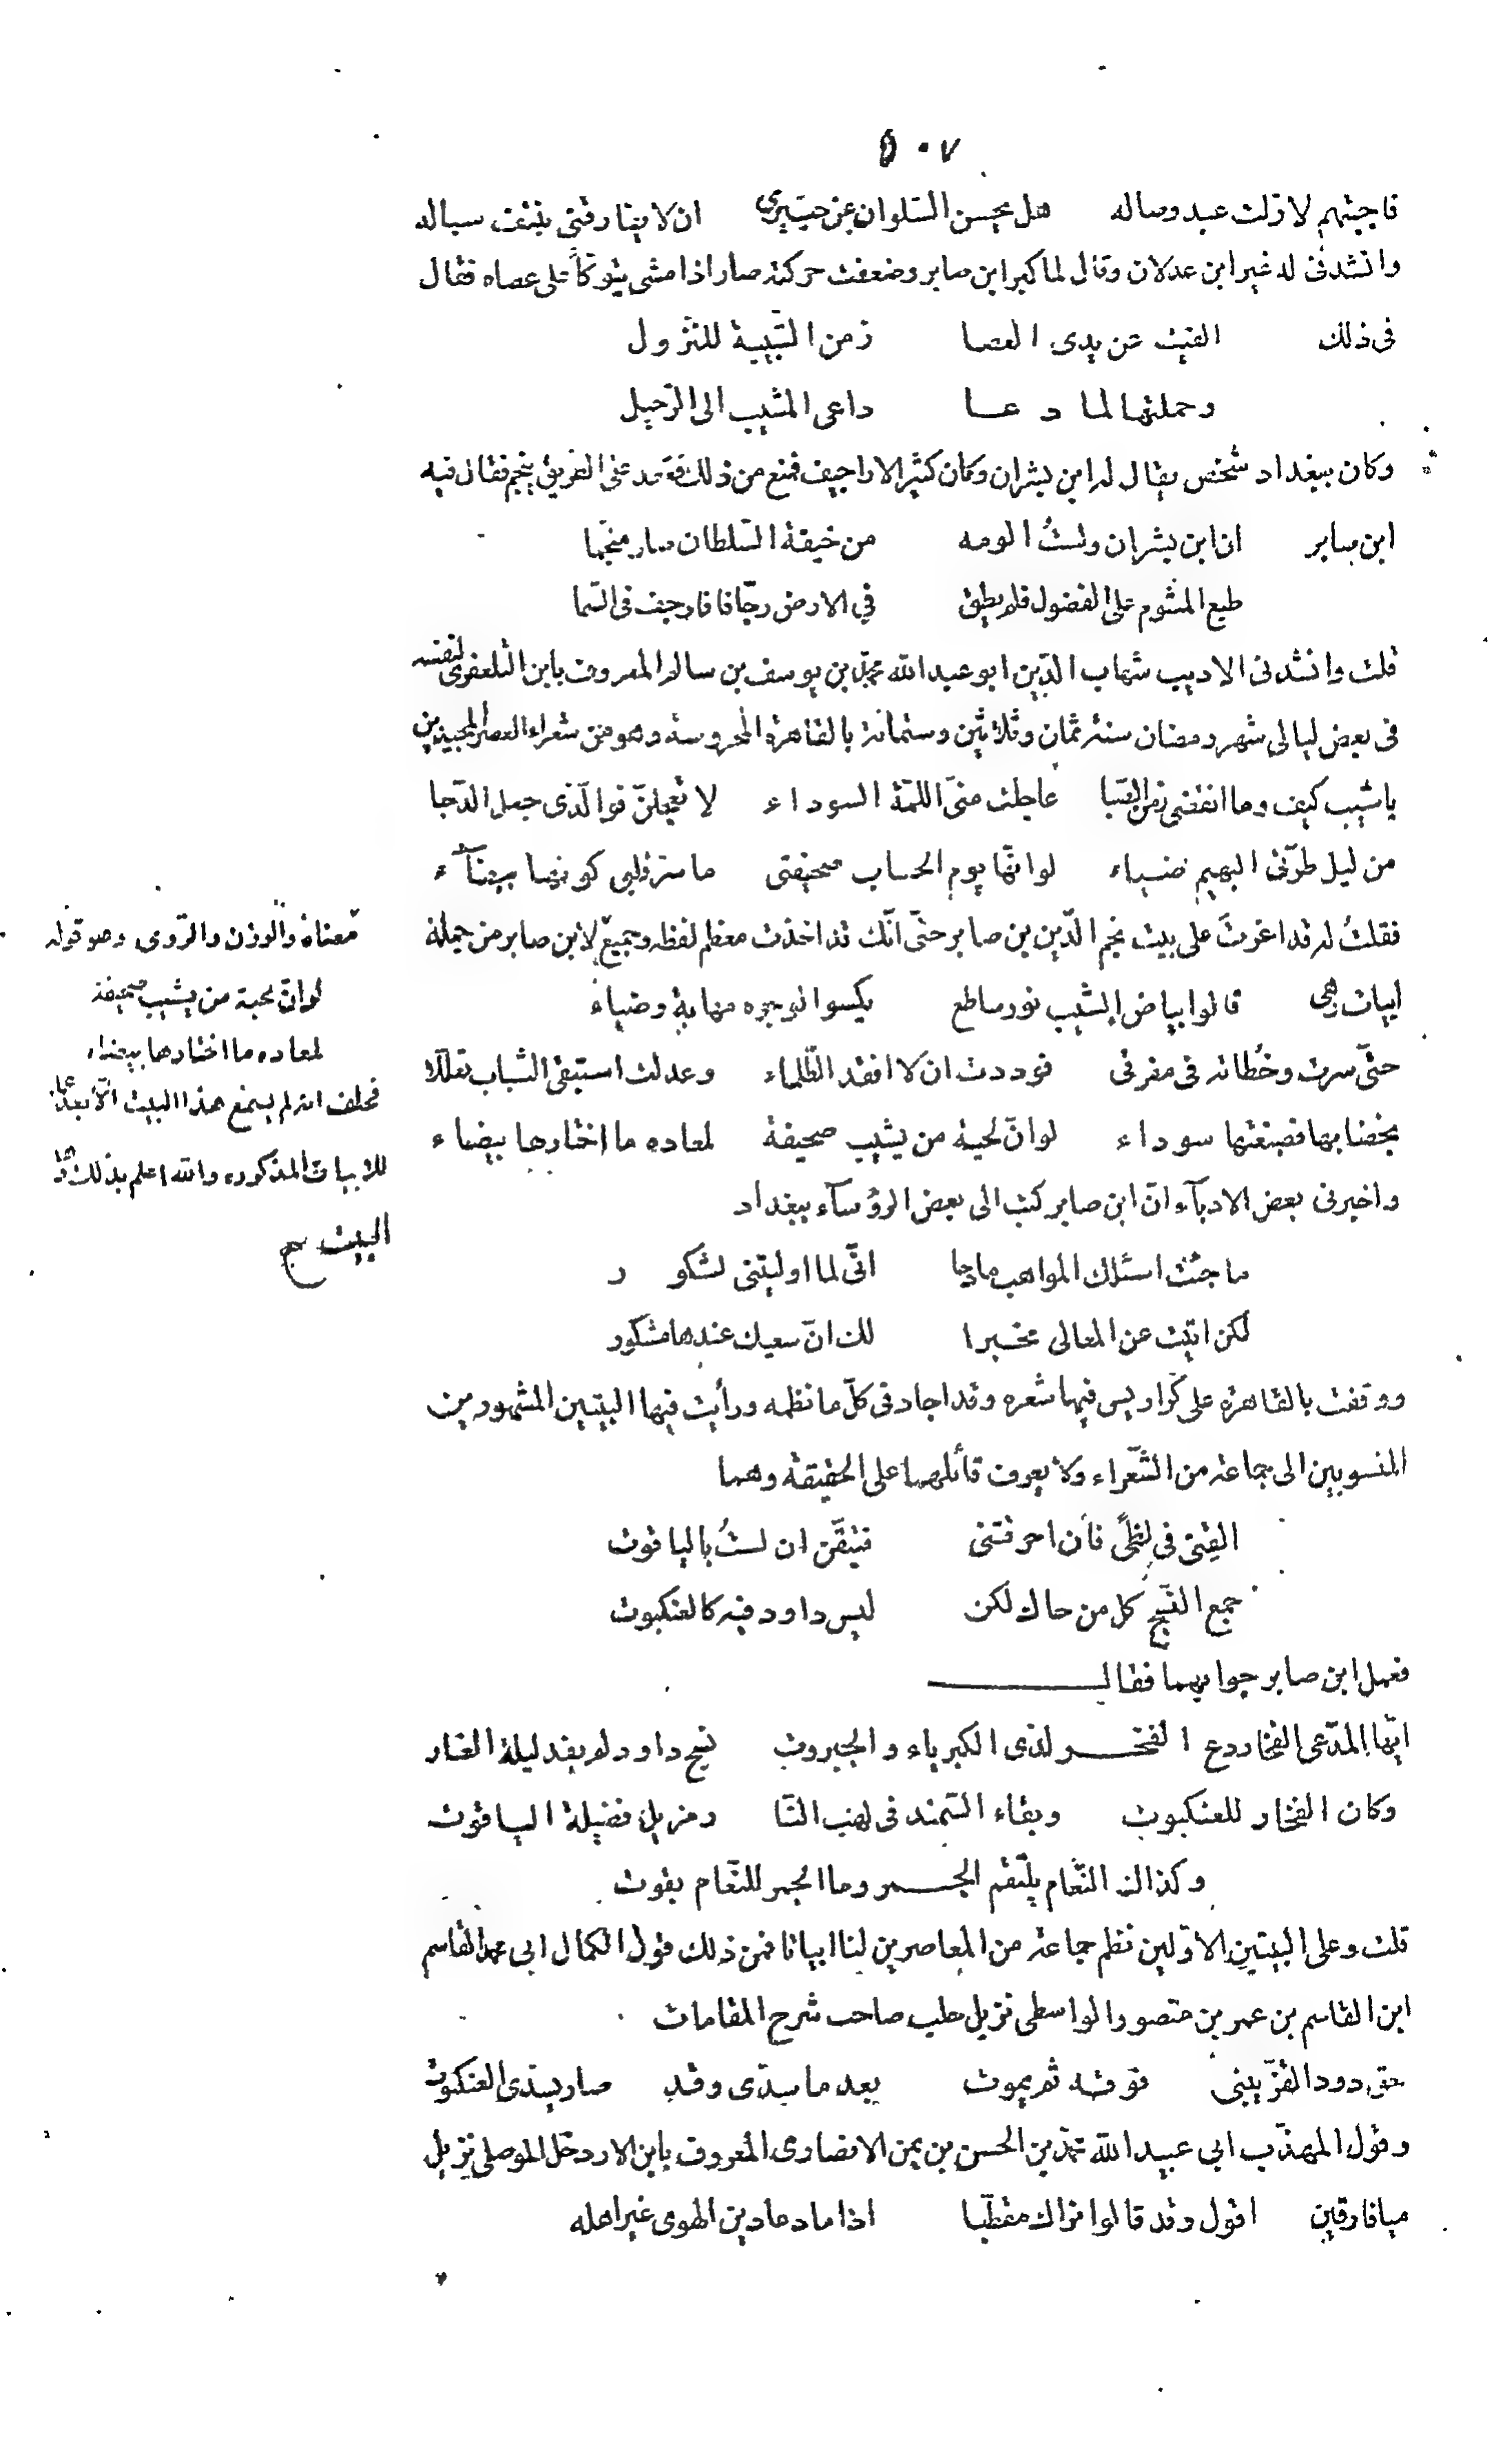 ٥٠٧
فاجبتهم لا زلت عبد وصاله هل يحسن السّلوان عن حبّ يرى ان لا يفارقنى بنتف سباله
وانشدنى له غير ابن عدلان وقال لما كبر ابن صابر وضعفت حركته صار اذا مشى يتوكّأ على عصاه فقال
فى ذلك القيت عن يدى العصا زمن الشّبيبة للنّزول
وحملتها لما دعا داعى المشيب الى الرّحيل
وكان ببغداد شخص يقال له ابن بشران وكان كثير الاراجيف فمنع من ذلك فقعد على الطريق ينجم فقال فيه
ابن صابر ان ابن بشران ولستُ الومه من خيفة السّلطان صار منجّما
طبع المشوم على الفضول فلم يطق في الارض رجّافا فارجف فى السّما
قلت وانشدنى الاديب شهاب الدّين ابو عبد الله محمّد بن يوسف بن سالم المعروف بابن التلعفرى لنفسه
فى بعض ليالى شهر رمضان سنة ثمان وثلاثين وستمائة بالقاهرة المحروسة وهو من شعراء العصر المجيدين
يا شيب كيف وما انقضى زمن الصّبا عاجلت منّى اللمّة السوداء لا تعجلنّ فوالّذى جعل الدّجا
من ليل طرّتى البهيم ضياء لو انّها يوم الحساب صحيفتى ما سرّ قلبى كونها بيضآء
فقلتُ له قد اغرتَ على بيت نجم الدّين بن صابر حتّى انّك قد اخذت معظم لفظه وجميع لابن صابر من جملة
ابيات وهى قالوا بياض الشّيب نور ساطع يكسوا الوجوه مهابة وضياء
حتّى سرت وخُطاته فى مفرقى فوددت ان لا افقد الظّلماء وعدلت استبقى الشباب تعلّلا
بخضابها فصبغتها سوداء لو انّ لحية من يشيب صحيفة لمعاده ما اختارها بيضاء
واخبرنى بعض الادبآء انّ ابن صابر كتب الى بعض الرؤسآء ببغداد
ما جئت اسئلك المواهب مادحا انّى لما اوليتنى لشكور
لكن اتيت عن المعالى مخبرا لك انّ سعيك عندها مشكور
ووقفت بالقاهرة على كراريس فيها شعره وقد اجاد فى كلّ ما نظمه ورأيت فيها البيتين المشهورين
المنسوبين الى جماعة من الشّعراء ولا يعرف قائلهما على الحقيقة وهما
القِنى فى لظًى فأن احرقتنى فتيقّن ان لستُ بالياقوت
جمع النّسج كل من حاك لكن ليس داود فيه كالعنكبوت
فعمل ابن صابر جوابهما فقال
ايّها المدّعى الفخار دع الفخر لذى الكبرياء والجبروت نسج داود لم يفد ليلة الغار
وكان الفخار للعنكبوت وبقاء السّمند فى لهب النّا ر مزيل فضيلة الياقوت
وكذاك النّعام يلتقم الجمر وما الجمر للنّعام بقوت
قلت وعلى البيتين الاوّلين نظم جماعة من المعاصرين لنا ابياتا فمن ذلك قول الكمال ابى محمد القاسم
ابن القاسم بن عمر بن منصور الواسطى نزيل حلب صاحب شرح المقامات
حتى دود القزّ يبنى فوقه ثم يموت بعد ما سدّى وقد صار يسدّى العنكبوت
وقول المهذّب ابى عبد الله محمّد بن الحسن بن يمن الانصارى المعروف بابن الاردخل الموصلى نزيل
ميافارقين اقول وقد قالوا نراك مقطّبا اذا ما دعا دين الهوى غير اهله
معناه والوزن والرّوى وهو قوله
لو انّ لحية من يشيب صحيفة
لمعاده ما اختارها بيضاء
فحلف انه لم يسمع هذا البيت الّا بعد عمله
للابيات المذكورة والله اعلم بذلك
البيت صح